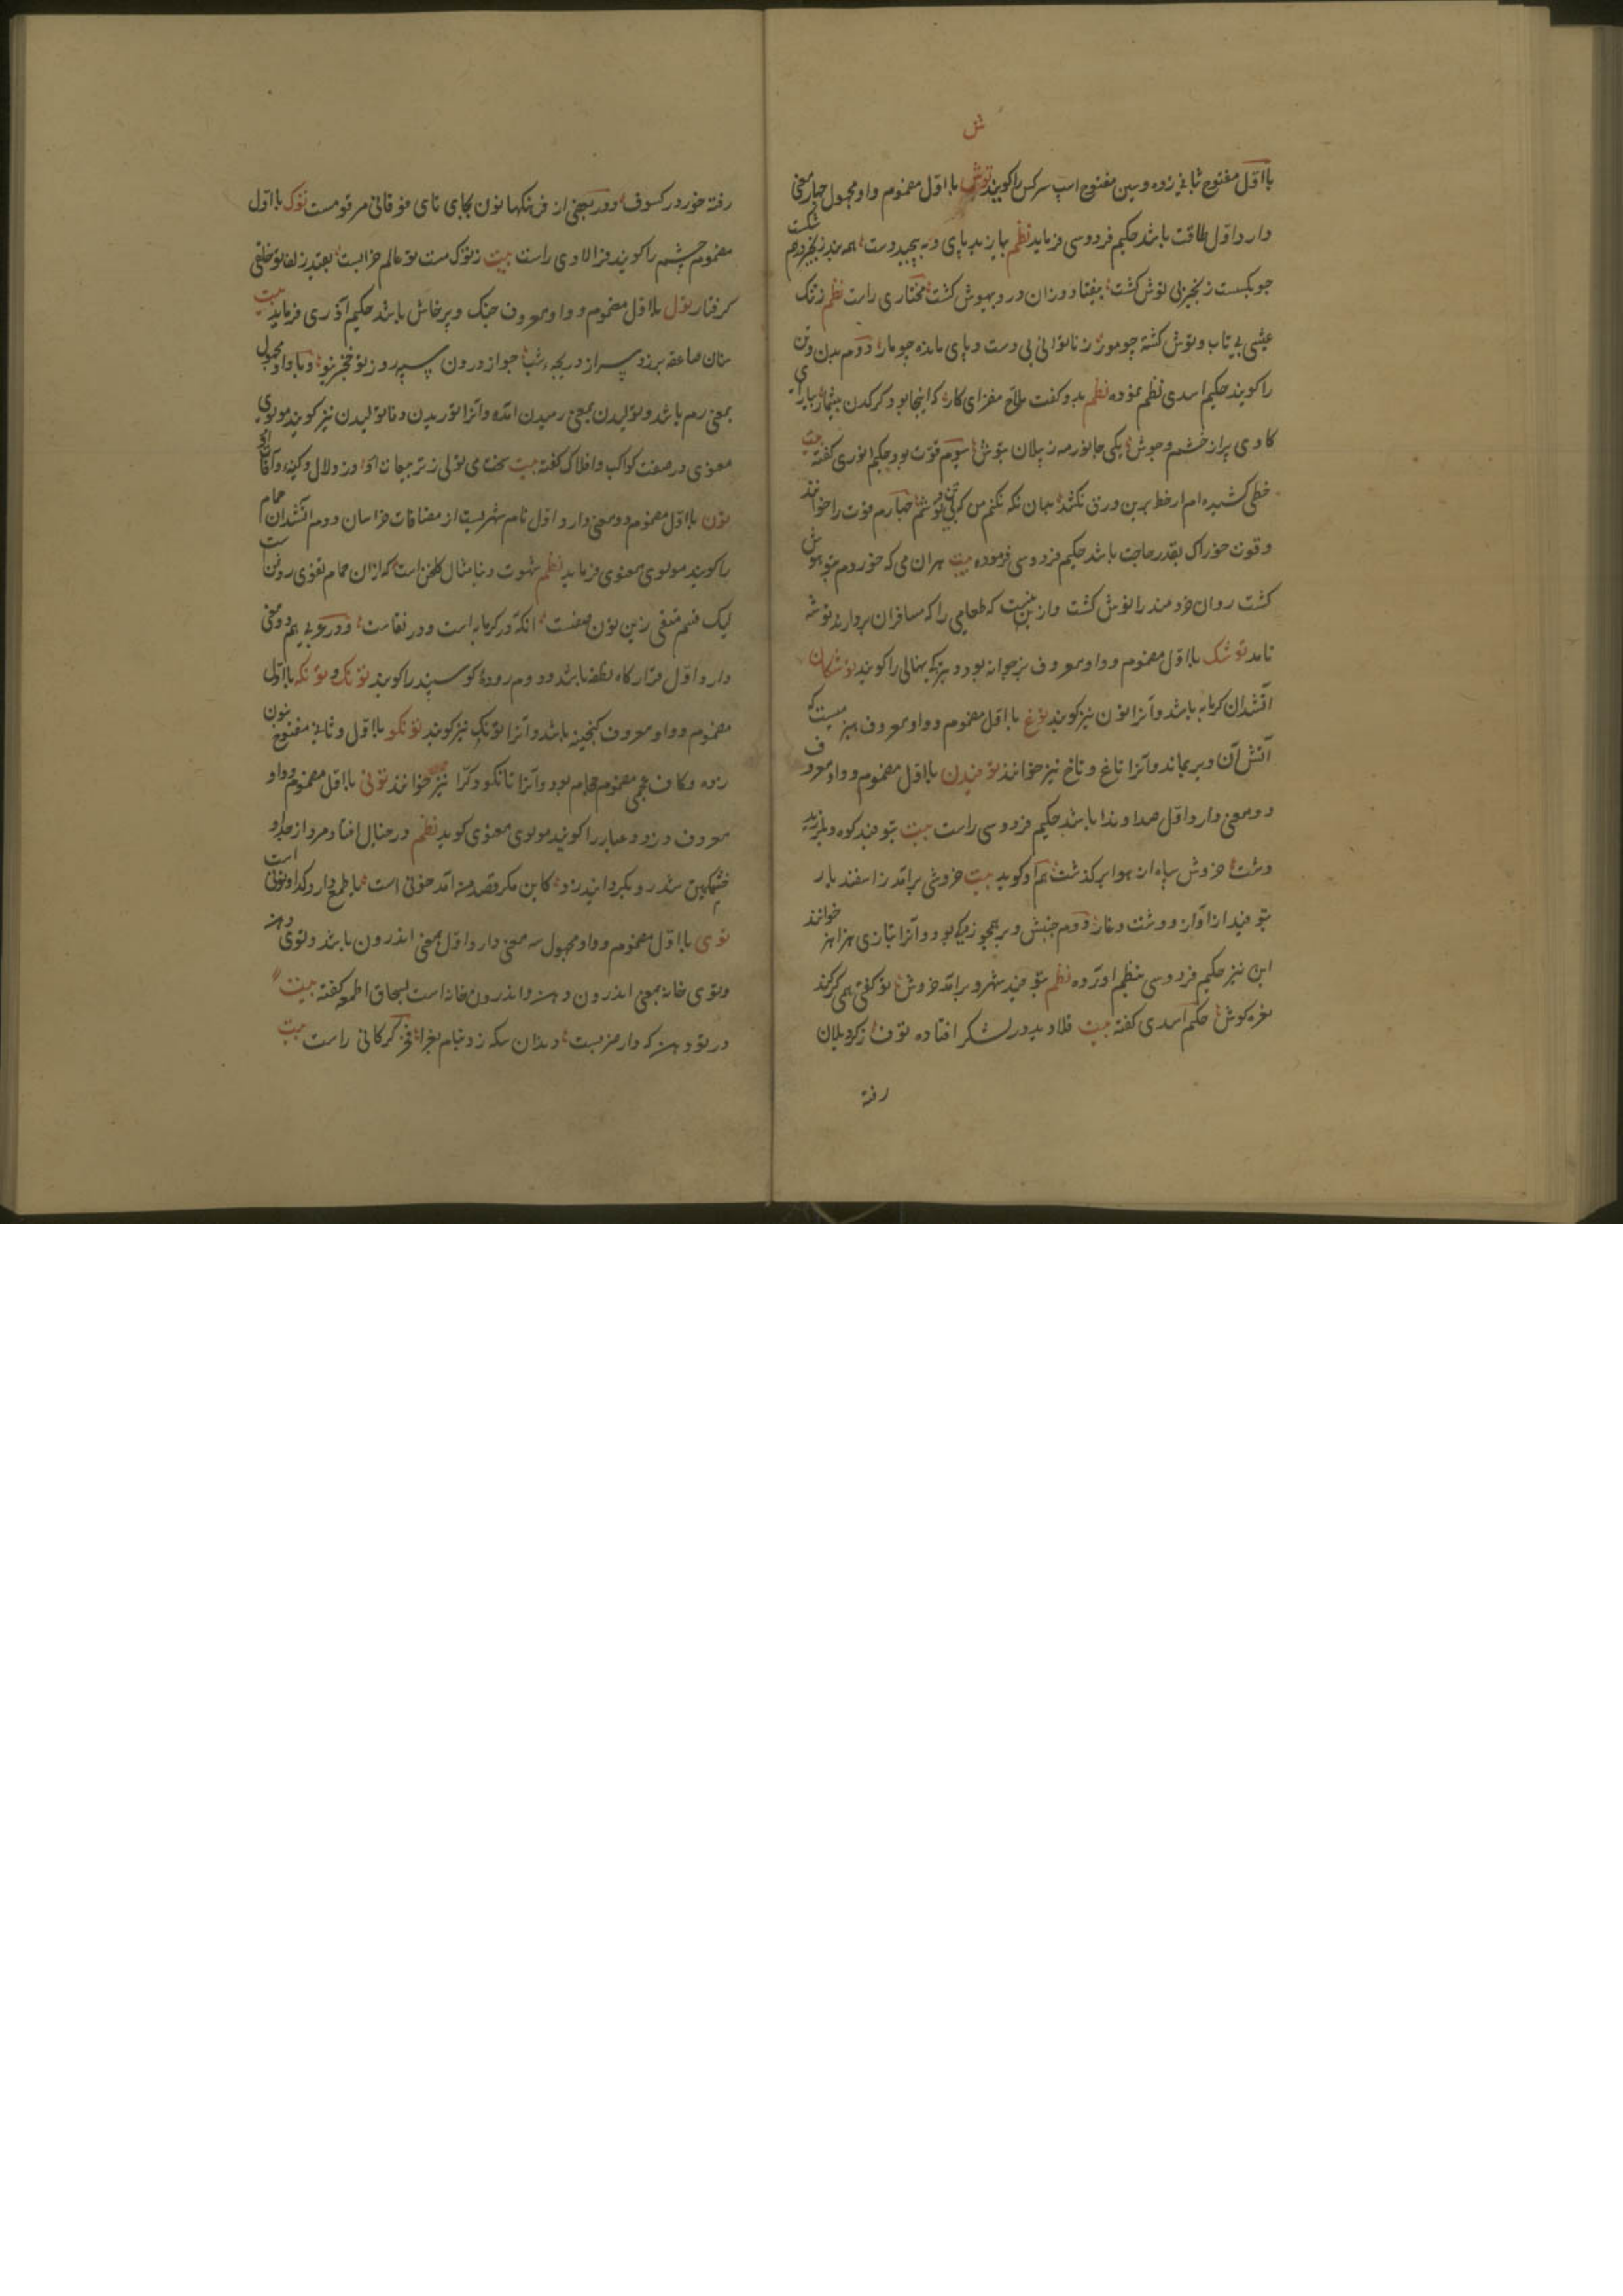 ش
با اول مفتوح ثانی زده و سین مفتوح اسپ سرکش را کویند توش با اول مضموم و واو مجهول چهار معنی
دارد اول طاقت باشد حکیم فردوسی فرماید نظم بیازید پای و به پیچید دست همه بند زنجیر درهم شکست
چو بکسست زنجیر بی توش کشت بیفتاد وزان درد بیهوش کشت مختاری راست نظم ز تنک
عیشی بی تاب و توش کشته چو مور ز ناتوانی بی دست و پای مانده چو مار دوم بدن و تن
را کویند حکیم اسدی نظم نموده نظم بدو کفت ملاح مفزای کار که اینجا بود کرکدن بیشمار
کاوی پر از خشم و جوش یکی جانور مه ز پیلان بتوش سوم قوت بود حکیم انوری کفته بیت
خطی کشیده ام ار خط برین ورق نکشد بجان نکه نکنم من که بی تن و توشم چهارم قوت را خوانند
و قوت خوراک بقدر حاجت باشد حکیم فردوسی فرموده بیت هران می که خوردم بتو نوش
کشت روان خردمند را توش کشت و ازینست که طعامی را که مسافران بردارند توشه
نامند توشک با اول مضموم و واو معروف بز جوانه بود و بزیکه نهالی را کویند توشکان
آتشدان کرمابه باشد و آنرا تون نیز کویند توغ با اول مضموم و واو معروف هیزمیست که
آتش آن دیر بماند و آنرا تاغ و تاخ نیز خوانند توفیدن با اول مضموم و واو معروف
دو معنی دارد اول صدا و ندا باشد حکیم فردوسی راست بیت بتوفید کوه و بلرزید
دشت خروش سپاه از هوا بر کذشت هم او کوید بیت خروشی برآمد ز اسفندیار
بتوفید از آواز او دشت و غار دوم جنبش و بود و آنرا بتازی هزاهز خوانند
این نیز حکیم فردوسی بنظم آورده نظم بتوفید شهر و برآمد خروش تو کفتی همی کر کند
نعره کوش حکیم اسدی کفته بیت فلاوید در لشکر افتاده توف ز کرد یلان
رفته
رفته خور در کسوف و در بعضی از فرهنکها نون بجای تای فوقانی مرقومست توک با اول
مضموم چشم را کویند فرالاوی راست بیت ز توک مست تو عالم خرابست بقید زلف تو خلقی
کرفتار تول با اول مضموم و واو معروف جنک و پرخاش باشد حکیم آذری فرماید بیت
سنان صاعقه برزد سر از دریچه شب چو از درون سپر روز تو خنجر نیو و با واو مجهول
بمعنی رم باشد و تولیدن بمعنی رمیدن آمده و آنرا توریدن و تاتولیدن نیز کویند مولوی
معنوی در صفت کواکب و افلاک کفته بیت سخت می تولی ز تربیعات او وز دلال و کینه و آفات او
تون با اول مضموم دو معنی دارد اول نام شهریست از مضافات خراسان دوم آتشدان حمام
را کویند مولوی معنوی فرماید نظم شهوت دنیا مثال کلخن است که ازان حمام تقوی روشن است
لیک قسم متقی زین تون صفاست زانکه در کرمابه است و در نقاست و در عربی هم دو معنی
دارد اول قرارکاه نطفه باشد و دوم روده کوسپند را کویند تونک و تونکه با اول
مضموم و واو معروف کنجینه باشد و آنرا تونک نیز کویند تونکو با اول و ثانی مفتوح بنون
زده و کاف عجمی مضموم حجام بود و آنرا تانکو و کرا نیز خوانند تونی با اول مضموم و واو
معروف دزد و عیار را کویند مولوی معنوی کوید نظم در خیال افتاد مرد از جد او
خشمکین شد رو بکردانید زود کاین مکر قصد من آمد خونی است یا طمع دارد کدا و تونی است
توی با اول مضموم و واو مجهول سه معنی دارد اول بمعنی اندرون باشد و توی دهن
و توی خانه بمعنی اندرون دهن و اندرون خانه است بسحاق اطعمه کفته بیت
در تو دهن که دار ضربست دندان سکه زد بنام بغرا فخر کرکانی راست بیت